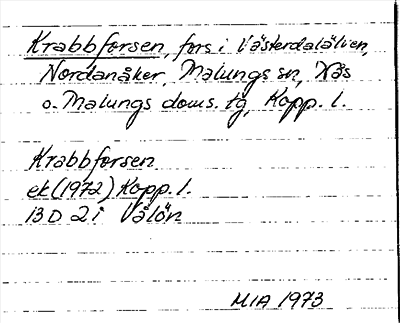 Krabbforsen, fors i Västerdalälven,
Nordanåker, Malungs sn, Nås
o. Malungs doms. tg, Kopp. l.
Krabbforsen
ek (1972) Kopp. l.
13 D 2 i Vålön
MIA 1973